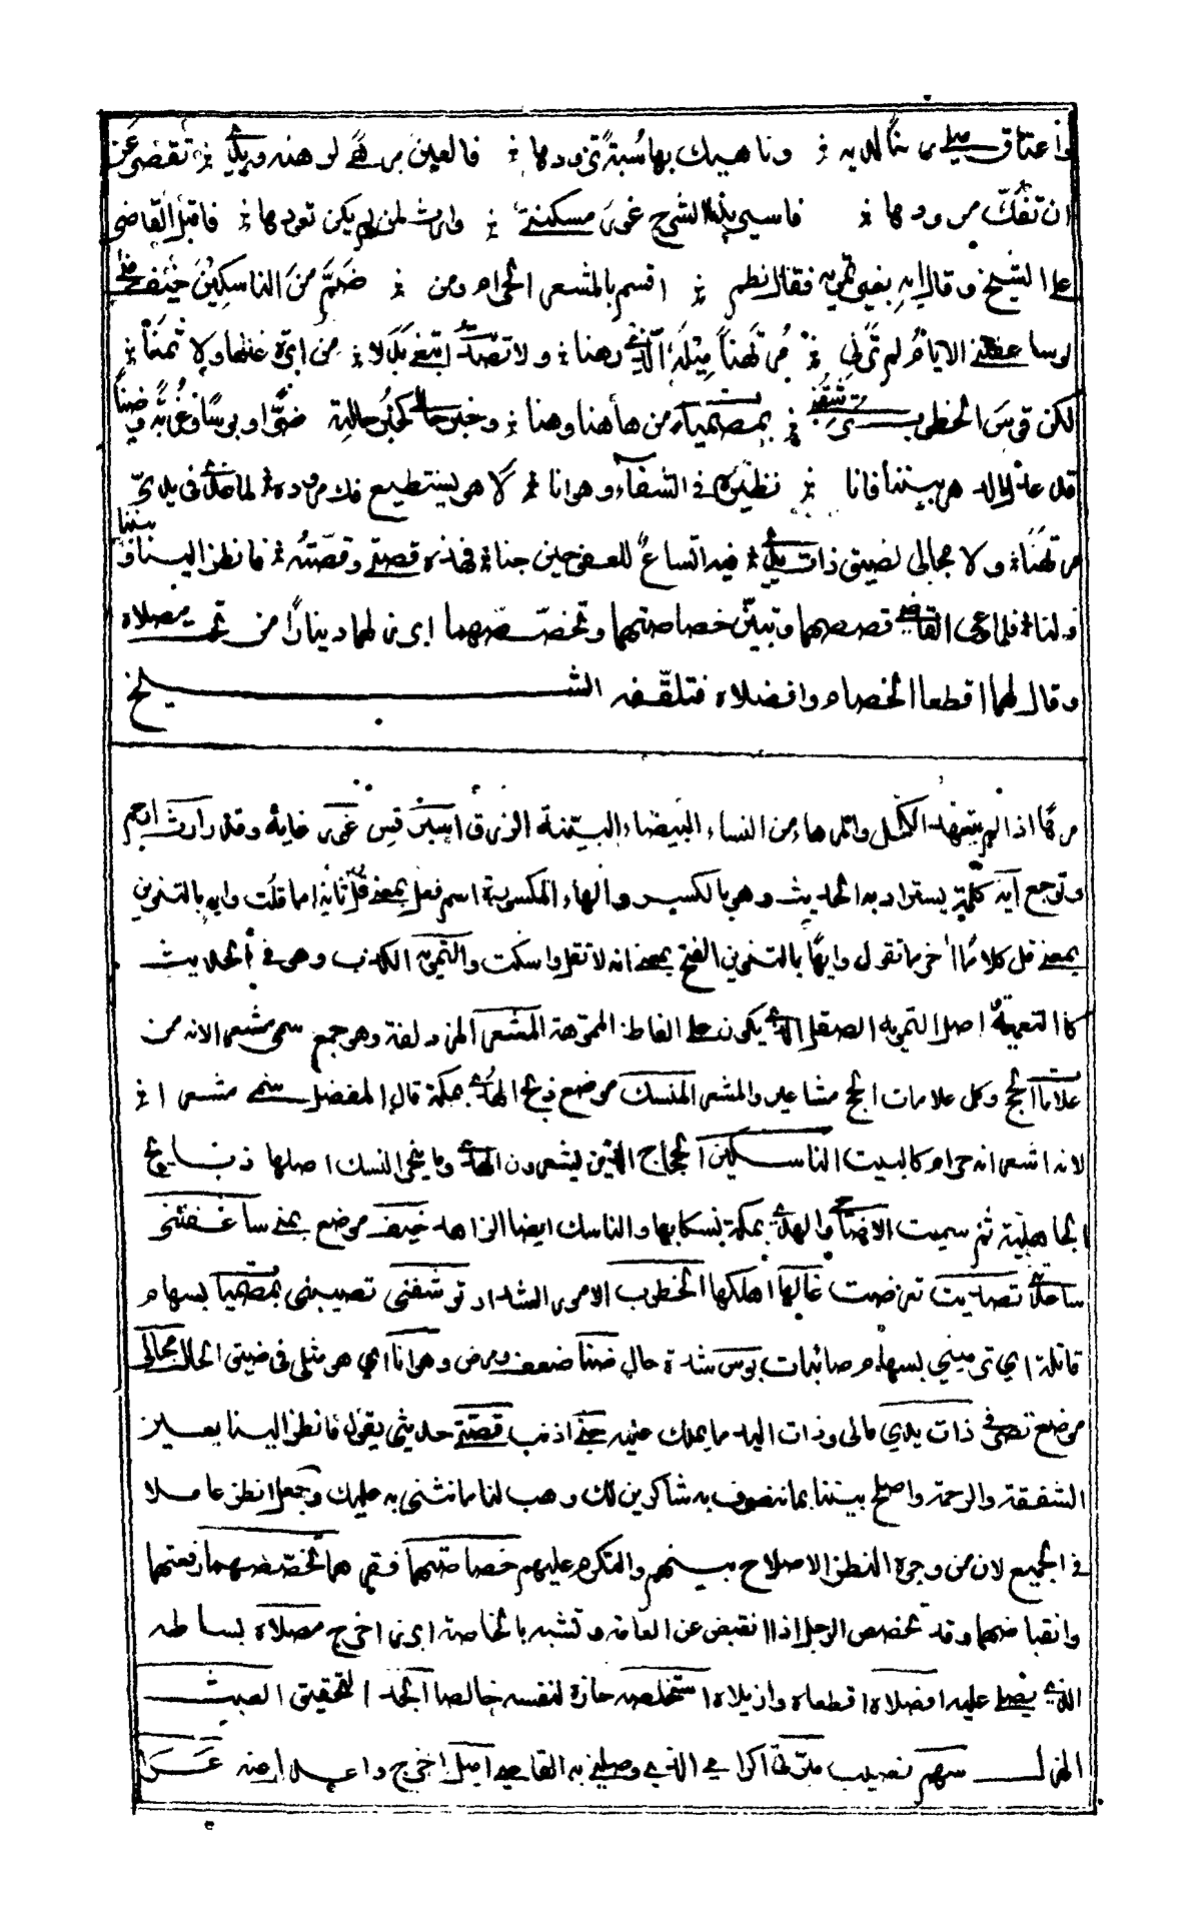 واعتاق ميلى رهنا لديه ؞ وناهيك بها سبة تزودها ؞ فالعين مرهى لرهنه ويدى ؞ تقصر عن
ان تفك مرودها ؞ فاسبر بذا الشرح غور مسكنتى ؞ وارث لمن لم يكن تعودها ؞ فاقبل القاضى
على الشيخ وقال ايه بغير تمويه فقال نظم ؞ اقسم بالمشعر الحرام ومن ؞ ضم من الناسكين خيف منى
لو ساعفتنى الايام لم ترنى ؞ مرتهنا ميله الذى رهنا ؞ ولا تصديت ابتغى بدلا ؞ من ابرة غالها ولا ثمنا ؞
لكن قوس الخطوب ترشقنى ؞ بمصميات من هاهنا وهنا ؞ وخبر حالى كخبر حالته ضرا وبؤسا وغربة وضنا
قد عدل الدهر بيننا فانا ؞ نظيره فى الشقاء وهو انا ؞ لا هو يستطيع فك مروده ؞ لما غدا فى يدى
مرتهنا ؞ ولا مجالى لضيق ذات يدى ؞ فيه اتساع للعفو حين جنا ؞ فهذه قصتى وقصته ؞ فانظر الينا وبيننا
ولنا ؞ فلما وعى القاضى قصصهما وتبين خصاصتهما وتخصصهما ابرز لهما دينارا من تحت مصلاه
وقال لهما اقطعا الخصام وافصلاه فتلقفه الشيخ
مرها اذا لم يتعهد الكحل والمرهاء من النساء البيضاء البينة الزرق اسبر قس غور غاية وقدر ارث ارحم
وتوجع ايه كلمة يستزاد به الحديث وهى بالكسر والهاء المكسورة اسم فعل بمعنى قل ثانيا ما قلت وايه بالتنوين
بمعنى قل كلاما اخر ما تقول وايها بالتنوين الفتح بمعنى انه لا تقل واسكت والتمويه الكذب وهو فى الحديث
كالتعمية اصل التمويه الصقل الذى يكون على الفاظ المموهة المشعر المزدلفة وهو جمع سمى مشعرا لانه من
علامات الحج وكل علامات الحج مشاعر والمشعر المنسك موضع ذبح الهدى بمكة قال المفضل سمى مشعرا ؞
لانه اشعر انه حرام كالبيت الناسكين الحجاج الذين يشعرون الهدى وما ينحر النسك اصلها ذبايح
الجاهلية ثم سميت الاضاحى والهدى بمكة نسكا بها والناسك ايضا الزاهد خيف موضع بمنى ساعفتنى
ساعدت تصديت تعرضت غالها اهلكها الخطوب الامور الشداد ترشقنى تصيبنى بمصميات بسهام
قاتلة اى ترمينى بسهام صائبات بوس شدة حال ضنا ضعف ومرض وهو انا اى هو مثلى فى ضيق الحال مجالى
موضع تصرفى ذات يدى مالى وذات اليد ما يملك عنيه جنى اذنب قصتى حديثى يقول فانظر الينا بعين
الشفقة والرحمة واصلح بيننا بما ننصرف به شاكرين لك وهب لنا ما نثنى به عليك وجعل انظر عاملا
فى الجميع لان من وجوه النظر الاصلاح بينهم والتكرم عليهم خصاصتهما فقرهما تخصصهما رفعتهما
وانقباضهما وقد تخصص الرجل اذا انقبض عن العامة وتشبه بالخاصة ابرز اخرج مصلاه بساطه
الذى يصلى عليه افصلاه اقطعاه وازيلاه استخلصه حازه لنفسه خالصا الجد التحقيق العبث
الهزل سهم نصيب مبرتى اكرامى الذى وصلنى به القاضى امل اخرج واعدل ارضه عرا